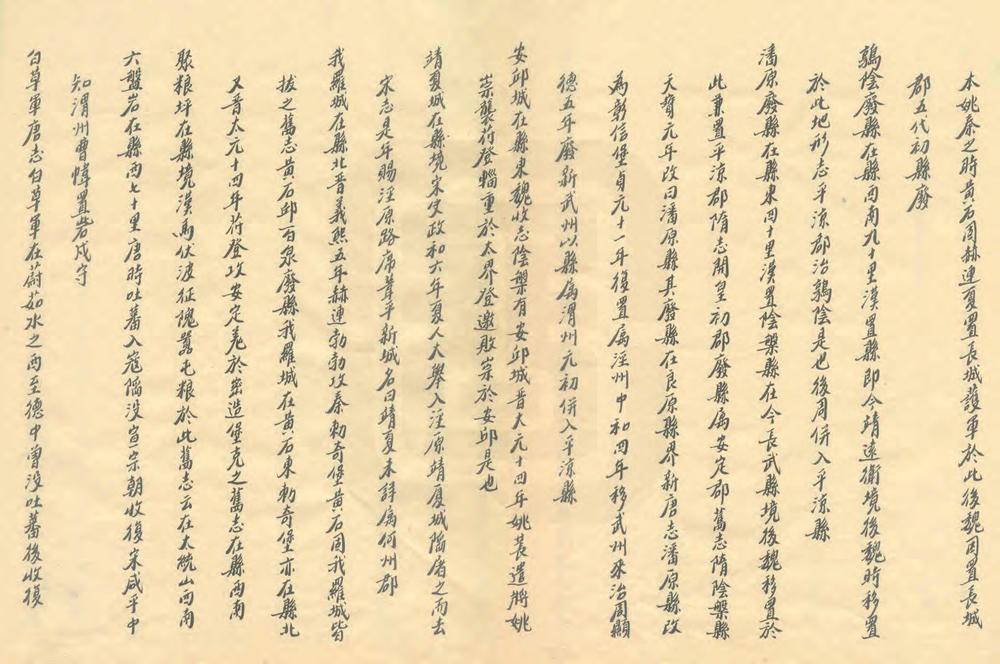 木姚秦之時黃石固赫連夏置長城護軍於此後魏因置長城
郡五代初縣廢
鶉陰廢縣在縣西南九十里漢置縣即今靖遠衛境後魏時移置
於此地形志平涼郡治鶉陰是也後周併入平涼縣
潘原廢縣在縣東四十里漢置陰槃縣在今長武縣境後魏移置於
此兼置平涼郡隋志開皇初郡廢縣屬安定郡舊志隋陰槃縣
天寶元年改曰潘原縣其廢縣在良原縣界新唐志潘原縣改
為彰信堡貞元十一年復置屬涇州中和四年移武州來治周顯
德五年廢新武州以縣屬渭州元初併入平涼縣
安邱城在縣東魏收志陰槃有安邱城晉太元十四年姚萇遣將姚
崇襲苻登輜重於大界登邀敗崇於安邱是也
靖夏城在縣境宋史政和六年夏人大舉入涇原靖夏城陷屠之而去
宋志是年賜涇原路席葦平新城名曰靖夏未詳屬何州郡
我羅城在縣北晉義熙五年赫連勃勃攻秦勑奇堡黃石固我羅城皆
拔之舊志黃石邱百泉廢縣我羅城在黃石東勑奇堡亦在縣北
又晉太元十四年苻登攻安定羌於密造堡克之舊志在縣西南
聚粮坪在縣境漢馬伏波征隗囂屯粮於此舊志云在太統山西南
六盤岩在縣西七十里唐時吐蕃入寇陷没宣宗朝收復宋咸平中
知渭州曹瑋置砦戍守
白草軍唐志白草軍在蔚茹水之西至德中曾沒吐蕃後收復